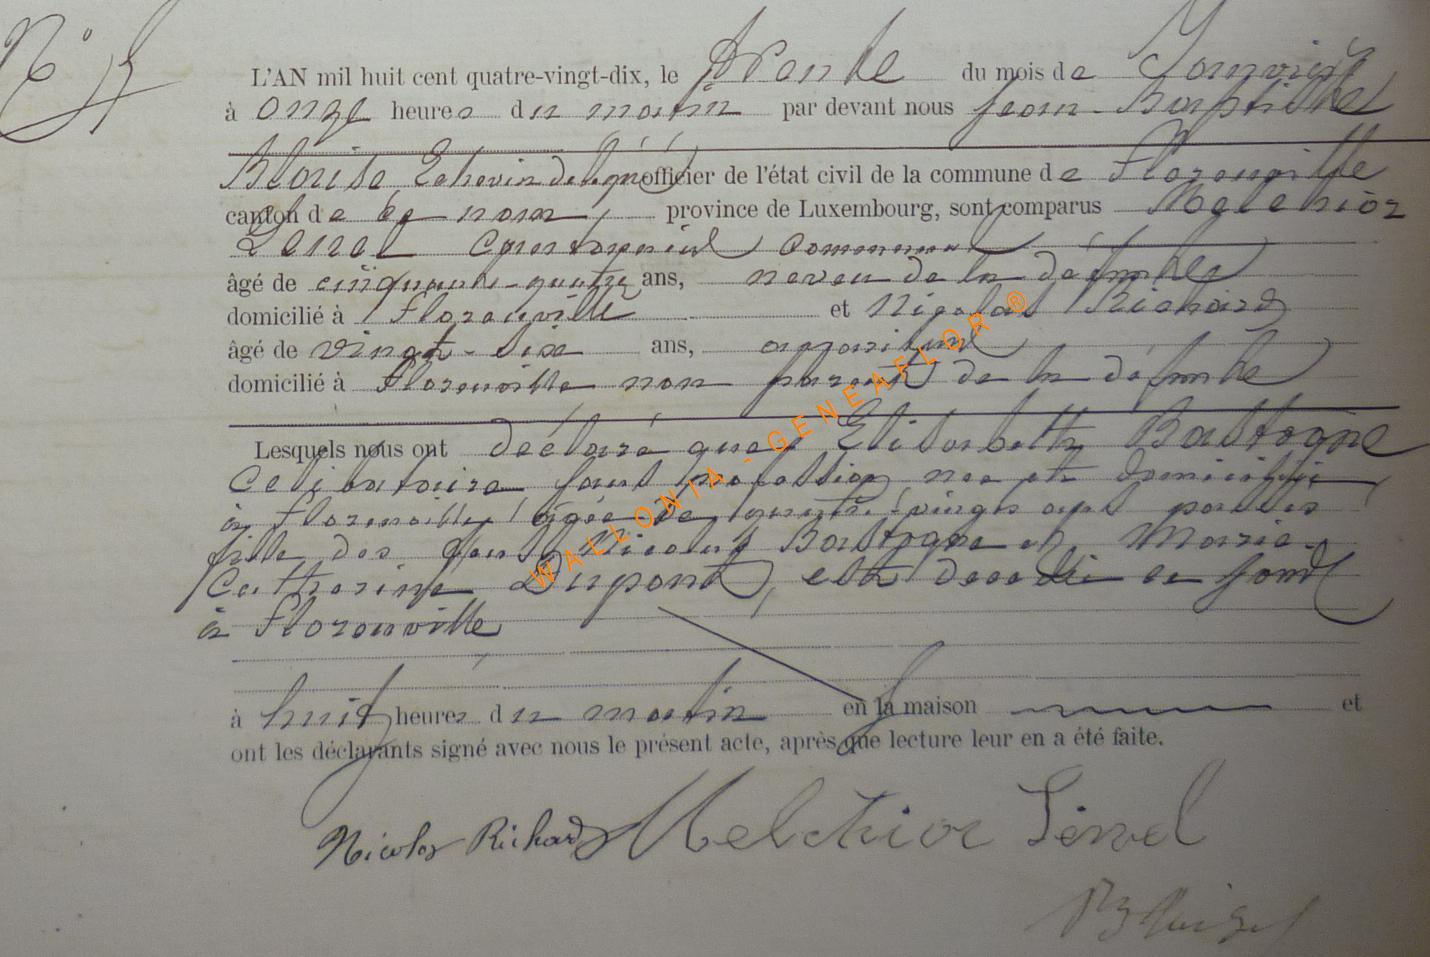 N° 5
L'AN mil huit cent quatre-vingt-dix, le trente du mois de Janvier
à onze heures du matin par devant nous Jean-Baptiste
Blaise, Echevin délégué officier de l'état civil de la commune de Florenville
canton de ce nom, province de Luxembourg, sont comparus Melchior
Lenel commun
âgé de cinquante-quatre ans, neveu de la défunte
domicilié à Florenville et Nicolas Richard
âgé de vingt-six ans,
domicilié à Florenville non parent de la défunte
Lesquels nous ont déclaré que Elisabeth Bastogne
Celibataire sans profession née et domiciliée
à Florenville âgée de quatre-vingts ans passés
fille des Nicolas Bastogne et Marie
Catherine Dupont, est décédée ce jour
à Florenville
à huit heures du matin en la maison et
ont les déclarants signé avec nous le présent acte, après que lecture leur en a été faite.
Nicolas Richard Melchior Lenel
WALLONIA - GENEAFLOR ®